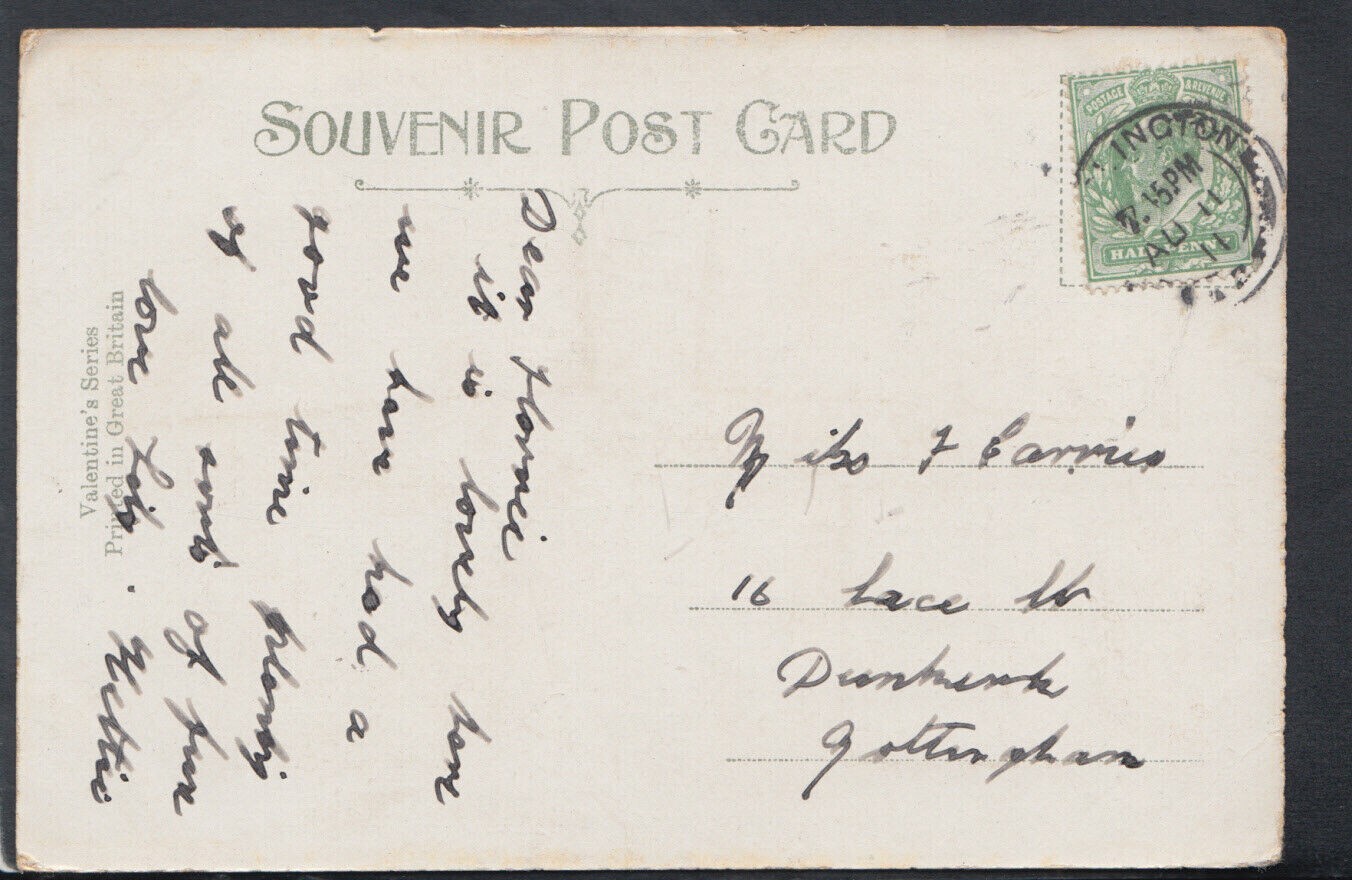 SOUVENIR POST CARD
POSTAGE & REVENUE
LINGTON
7.15 PM
AU 11
11
HALFPENNY
Valentine's Series
Printed in Great Britain
Dear Florrie
it is lovely here
we have had a
good time plenty
of all sorts of fun
love Lily. Nettie
Miss F Carvis
16 Lace St
Dunkirk
Nottingham